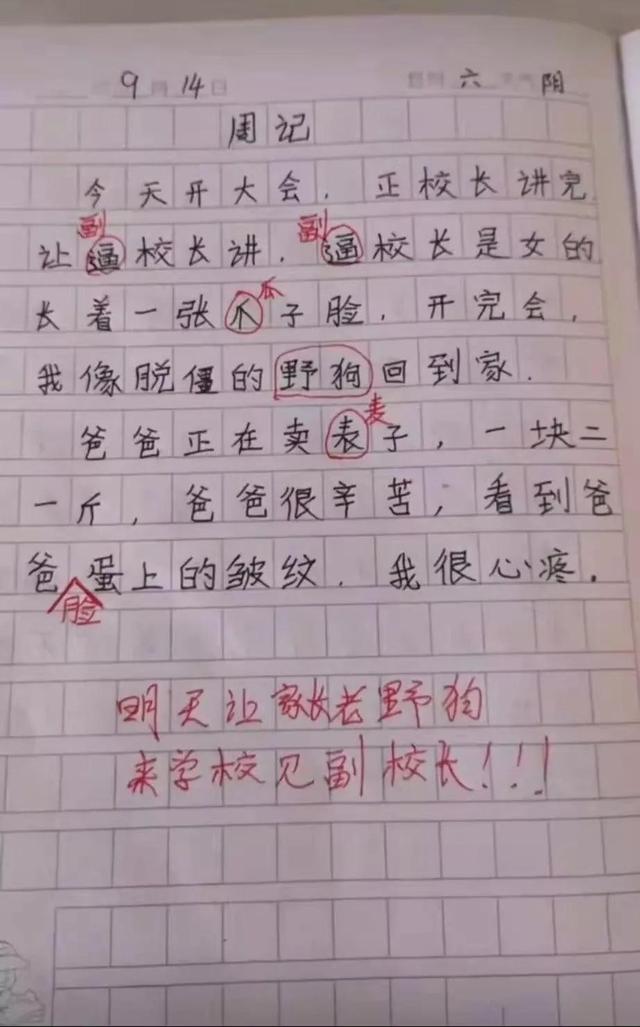 9月14日 星期六 天气阴
周记
今天开大会，正校长讲完
副 副
让逼校长讲，逼校长是女的
瓜
长着一张爪子脸，开完会，
我像脱僵的野狗回到家．
麦
爸爸正在卖表子，一块二
一斤，爸爸很辛苦，看到爸
爸蛋上的皱纹．我很心疼．
脸
明天让家长老野狗
来学校见副校长！！！